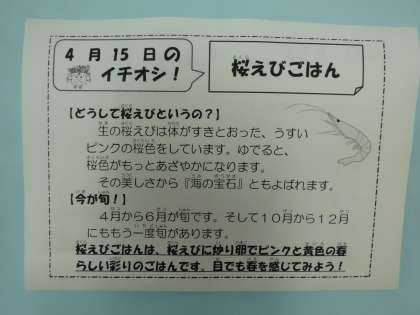 4月15日の
イチオシ！
桜えびごはん
【どうして桜えびというの？】
生の桜えびは体がすきとおった、うすい
ピンクの桜色をしています。ゆでると、
桜色がもっとあざやかになります。
その美しさから『海の宝石』ともよばれます。
【今が旬！】
４月から６月が旬です。そして１０月から１２月
にももう一度旬があります。
桜えびごはんは、桜えびに炒り卵でピンクと黄色の春
らしい彩りのごはんです。目でも春を感じてみよう！